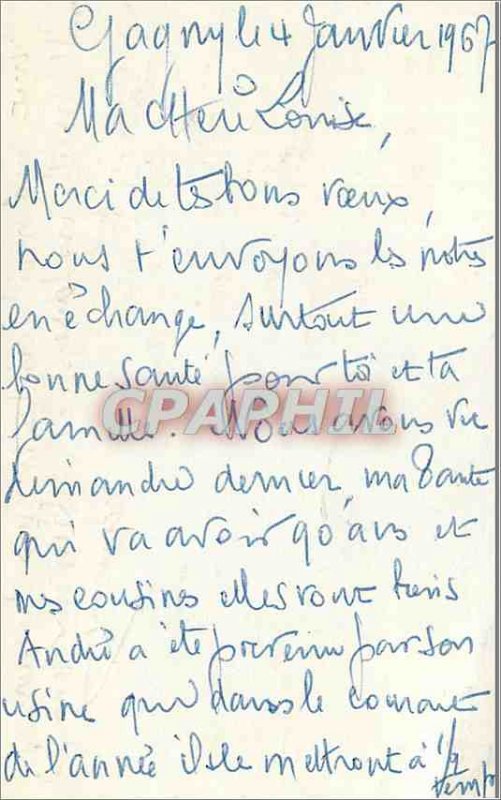 Gagny le 4 Janvier 1967
Ma chère Louise,
Merci de tes bons vœux,
nous t'envoyons les nôtres
en échange, surtout une
bonne santé pour toi et ta
famille. Nous avons vu
CPAPHIL
dimanche dernier, ma Tante
qui va avoir 90 ans et
mes cousines elles vont bien
André a été prévenu par son
usine que dans le courant
de l'année ils le mettront à 1/2
temps